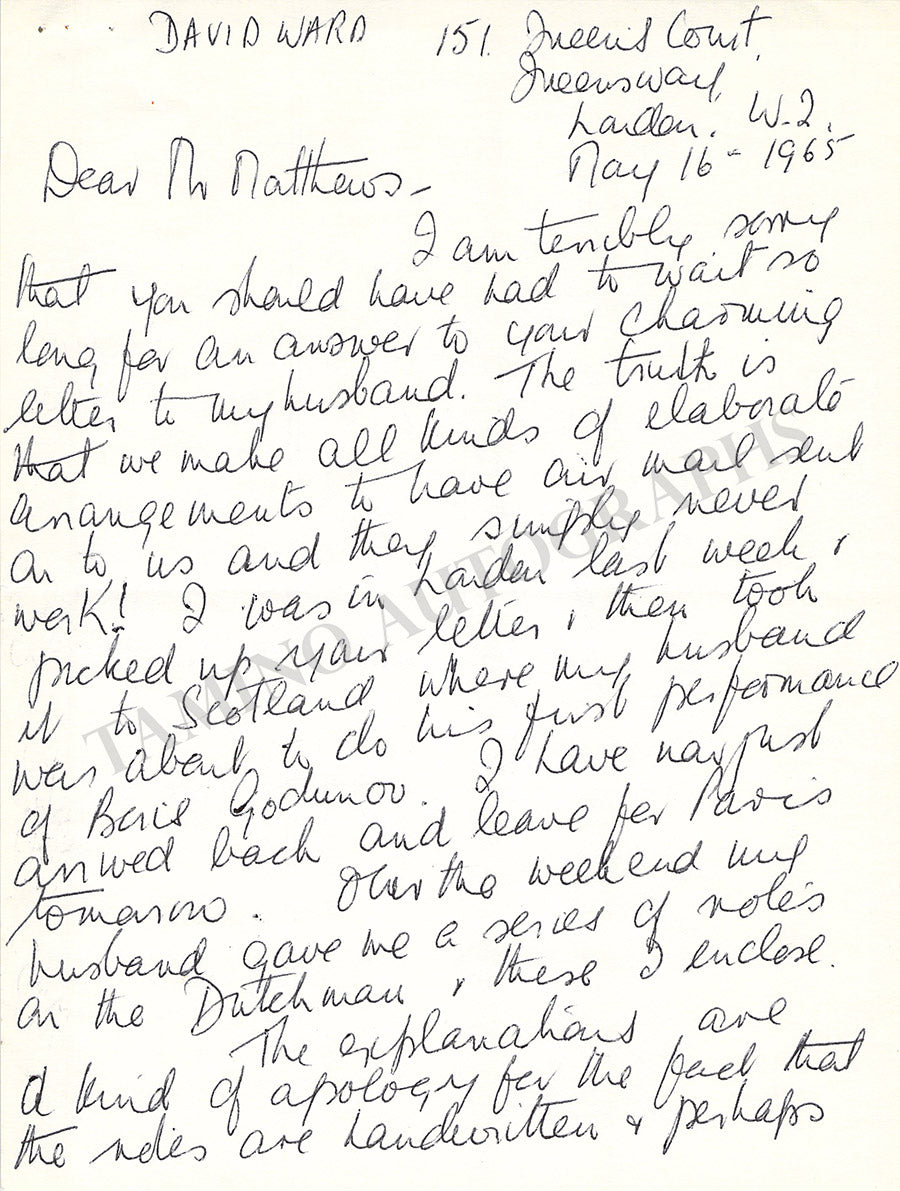 DAVID WARD 151. Queen's Court,
Queensway,
London. W.2.
May 16 - 1965
Dear Mr Matthews -
I am terribly sorry
that you should have had to wait so
long for an answer to your charming
letter to my husband. The truth is
that we make all kinds of elaborate
arrangements to have air mail sent
on to us and they simply never
work! I was in London last week, &
picked up your letter, & then took
it to Scotland where my husband
was about to do his first performance
of Boris Godunov. I have now just
arrived back and leave for Paris
tomorrow. Over the weekend my
husband gave me a series of notes
on the Dutchman, & these I enclose.
The explanations are
a kind of apology for the fact that
the notes are handwritten & perhaps
TAMINO AUTOGRAPHS